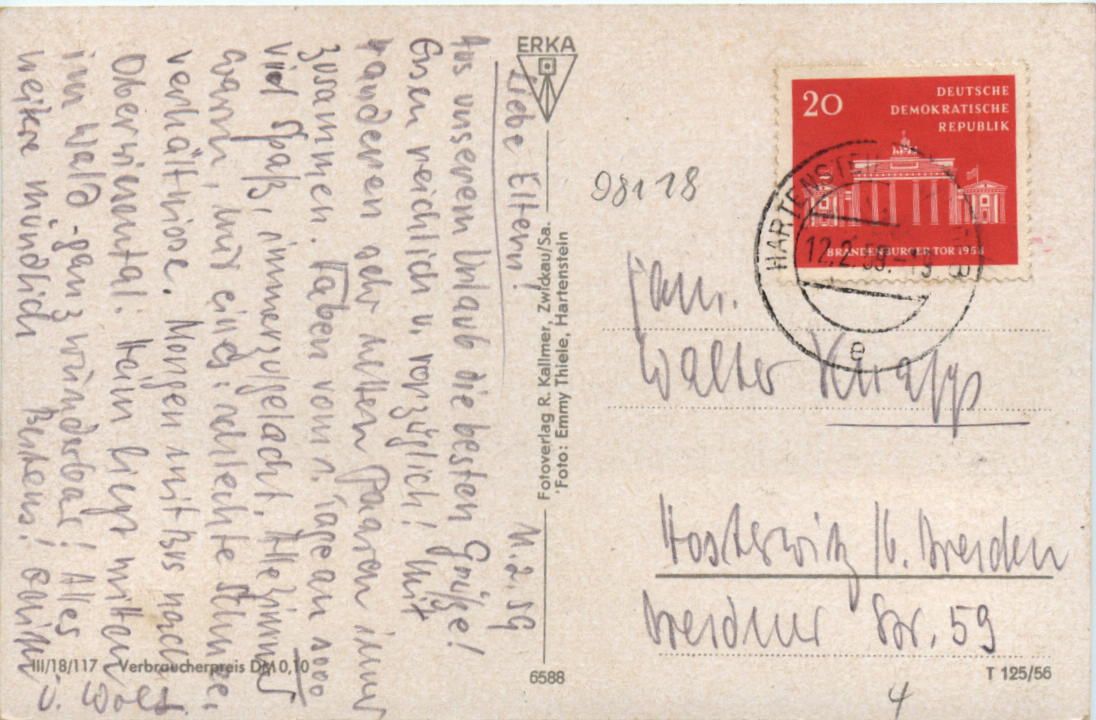 ERKA
11.2.59
Liebe Eltern!
Aus unserem Urlaub die besten Grüße!
Essen reichlich u. vorzüglich! Mit
anderen sehr netten Paaren immer
zusammen. Haben vom 1. Tage an sooo
viel Spaß, immerzu gelacht. Alle Zimmer
warm, nur eines: schlechte Schnee-
verhältnisse. Morgen mit Bus nach
Oberwiesental. Heim liegt mitten
im Wald - ganz wunderbar! Alles
weitere mündlich Bestens!
u. Wolf.
III/18/117 Verbraucherpreis DM 0,10
Fotoverlag R. Kallmer, Zwickau/Sa.
Foto: Emmy Thiele, Hartenstein
6588
98118
20
DEUTSCHE
DEMOKRATISCHE
REPUBLIK
BRANDENBURGER TOR 1958
HARTENSTEIN
12.2.59.-13
Fam.
Walter
Hosterwitz b. Dresden
Dresdner Str. 59
T 125/56
4